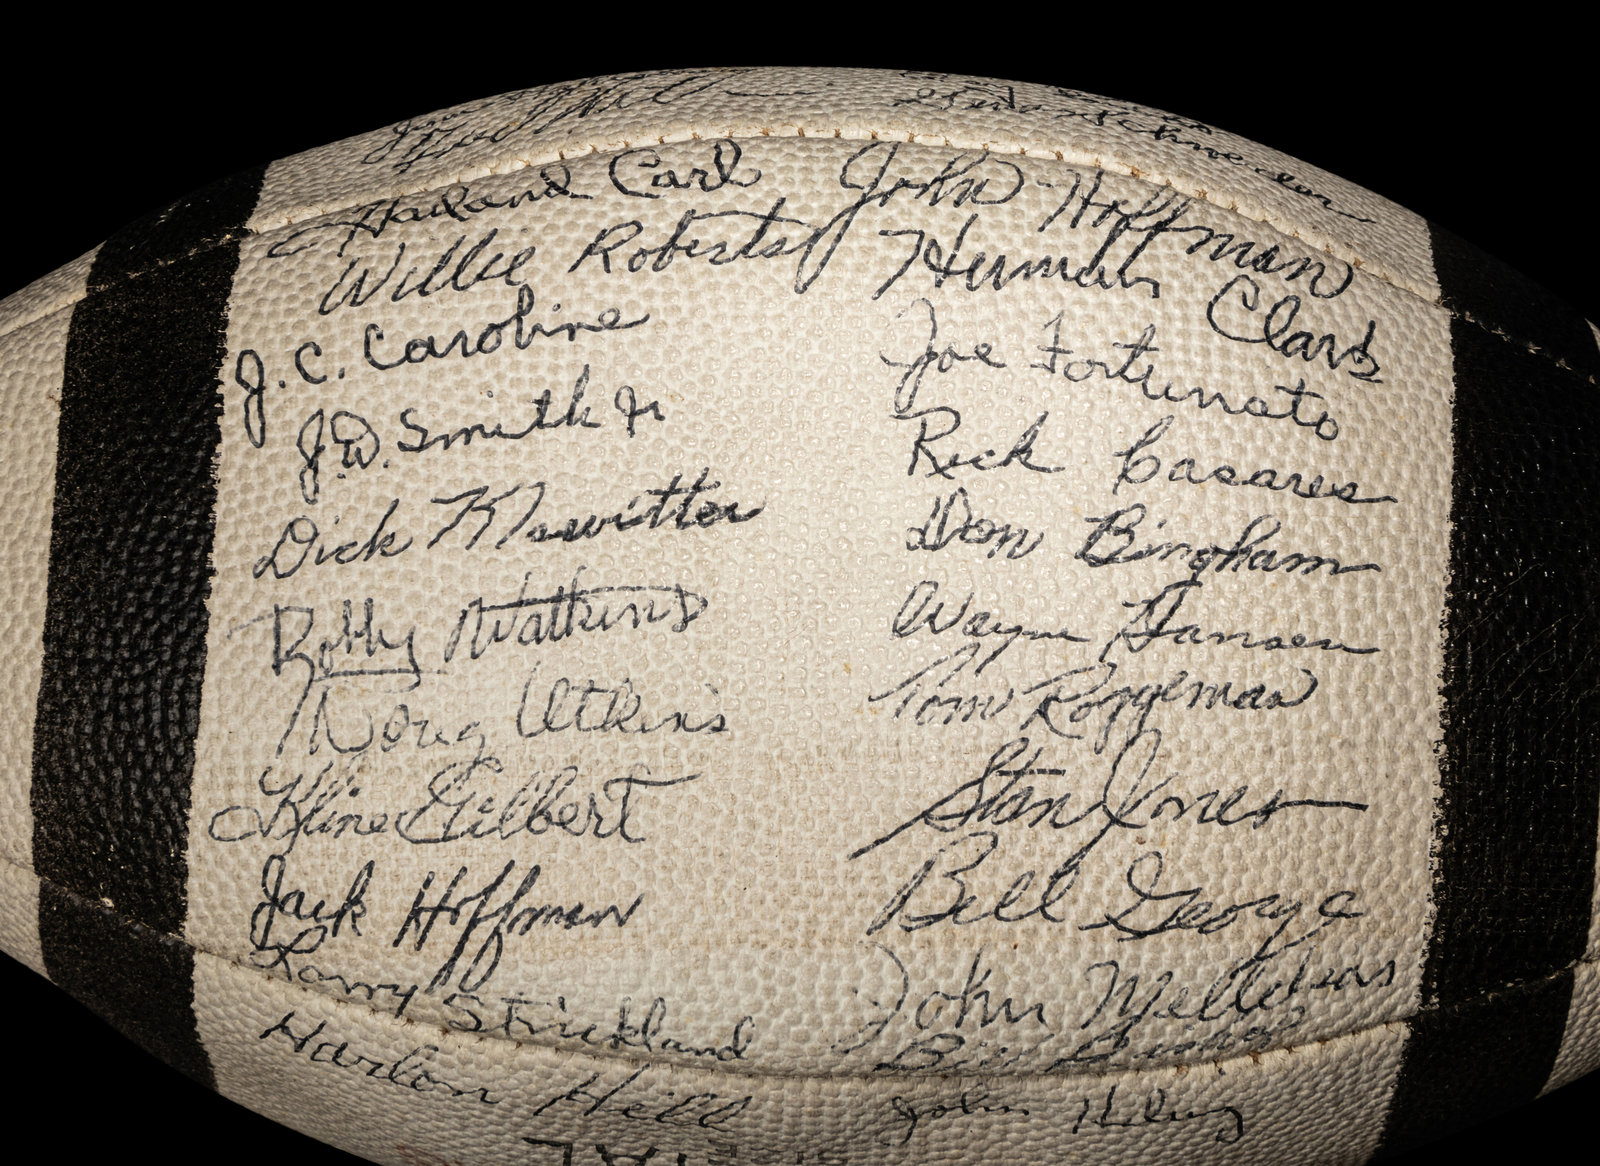 Harland Carl
Willie Roberts
J.C. Caroline
J.W. Smith Jr
Dick Klawitter
Bobby Watkins
Doug Atkins
Kline Gilbert
Jack Hoffman
Larry Strickland
Harlon Hill
John Hoffman
Herman Clark
Joe Fortunato
Rick Casares
Don Bingham
Wayne Hansen
Tom Roggeman
Stan Jones
Bill George
John Mellekas
Bill Bishop
John Helwig